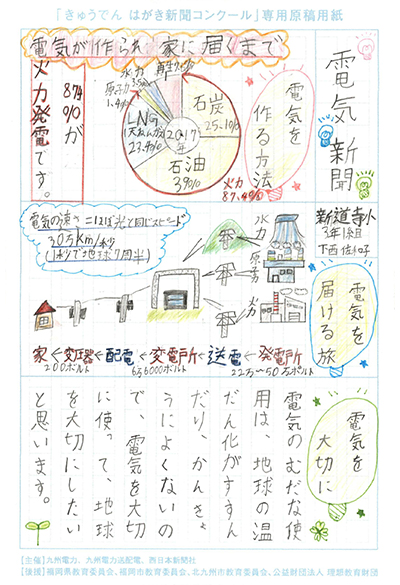 「きゅうでん はがき新聞コンクール」専用原稿用紙
電気新聞
新道寺小
3年1組
電気が作られ 家に届くまで
電気を
作る方法
石炭
25.10%
石油
39%
LNG
(天ねんガス)
23.40%
2017
年
原子力
1.4%
水力
3.5%
火力
87.4%
87.4%が
火力発電です。
電気を
届ける旅
電気の速さ=ほぼ光と同じスピード
30万km/秒
(1秒で地球7周半)
水力
原子力
火力
家←変圧器←配電←変電所←送電←発電所
200ボルト
6千6000ボルト
22万〜50万ボルト
電気を
大切に
電気のむだな使
用は、地球の温
だん化がすすん
だり、かんきょ
うによくないの
で、電気を大切
に使って、地球
を大切にしたい
と思います。
【主催】九州電力、九州電力送配電、西日本新聞社
【後援】福岡県教育委員会、福岡市教育委員会、北九州市教育委員会、公益財団法人 理想教育財団